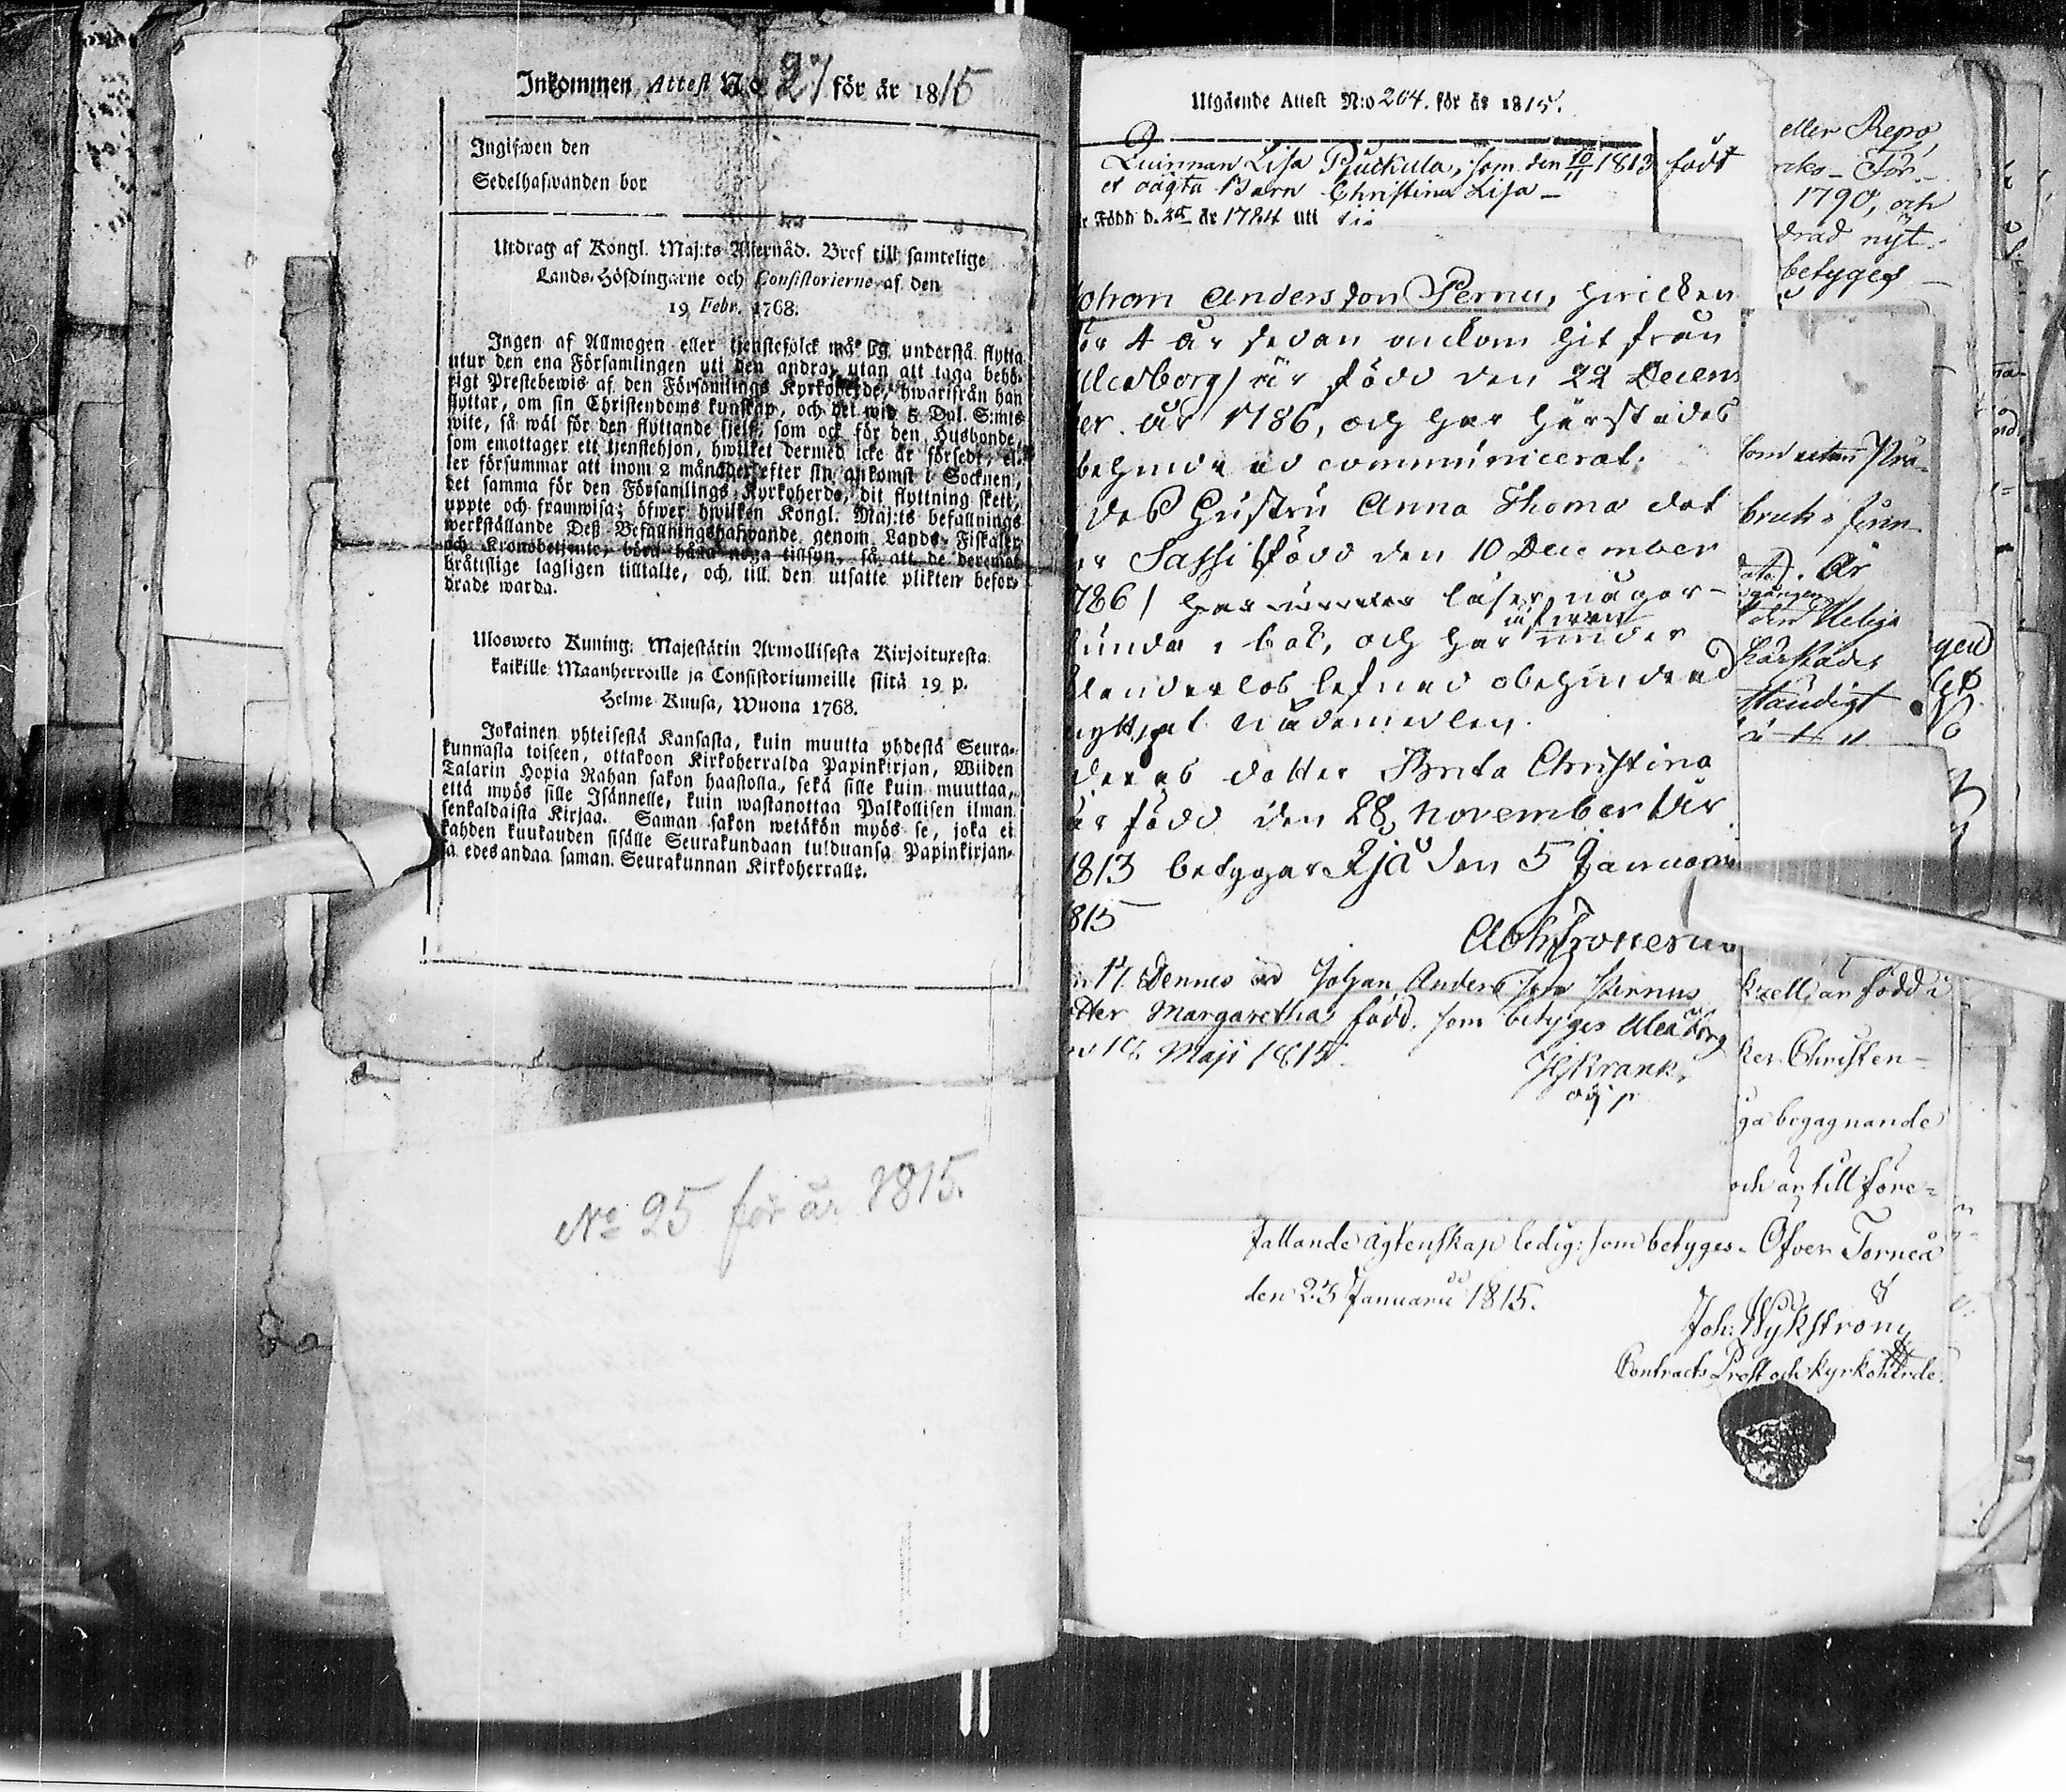 Inkommen Attest N:o 27 för år 1815
Ingifwen den
Sedelhafwanden bor
Utdrag af Kongl. Maj:ts Allernåd. Bref till samtelige
Lands-Höfdingarne och Consistorierne af den
19 Febr. 1768.
Ingen af Allmogen eller tjenstefolck må sig understå flytta
utur den ena Församlingen uti den andra, utan att taga behö-
rigt Prestebewis af den Församlings Kyrkoherde, hwarifrån han
flyttar, om sin Christendoms kunskap, och det wid 5 Dal. S:mts
wite, så wäl för den flyttande sjelf, som ock för den Husbonde,
som emottager ett tjenstehjon, hwilket dermed icke är försedt, el-
ler försummar att inom 2 månader efter sin ankomst i Socknen,
det samma för den Församlings Kyrkoherde, dit flyttning skett,
uppte och framwisa; öfwer hwilken Kongl. Maj:ts befallnings
werkställande Deß Befallningshafwande genom Lands-Fiskaler
och Kronobetjente, böra hålla noga tillsyn, så att de deremot
brätislige lagligen tilltalte, och till den utsatte plikten befor-
drade warda.
Ulosweto Kuning: Majestätin Armollisesta Kirjoituxesta
kaikille Maanherroille ja Consistoriumeille siitä 19 p.
Helme Kuusa, Wuona 1768.
Jokainen yhteisestä Kansasta, kuin muutta yhdestä Seura-
kunnasta toiseen, ottakoon Kirkoherralda Papinkirjan, Wiiden
Talarin Hopia Rahan sakon haastolla, sekä sille kuin muuttaa,
että myös sille Isännelle, kuin wastanottaa Palkollisen ilman
senkaldaista Kirjaa. Saman sakon wetäkön myös se, joka ei
kahden kuukauden sisälle Seurakundaan tulduansa Papinkirjan-
sa edesandaa saman Seurakunnan Kirkoherralle.
No 25 för år 1815.
Utgående Attest N:o 204. för år 1815.
Quinnan Lisa Pjuckilla, som den 10/11 1813 födt
et oägta Barn Christina Lisa
r Född d. år 1784 uti
ohan Andersson Pernu, hvilcken
ör 4 år sedan ankom hit från
Uleåborg / är född den 22 Decem
er år 1786, och har härstädes
behindrad communicerat.
des Hustru Anna Thoma dot
er Sassi / född den 10 December
786 / läser någor-
lunda i bok, och har under
klanderlös lefnad obehindrad
nyttjat Nådemedlen.
deras dotter Brita Christina
är född den 28 November år
1813 betygar Ijå den 5 Januarii
815
Ach Froterus
n 17 Dennes är Johan Andersson Pernus
otter Margaretha född, som betyges Uleåborg
Maji 1815.
HKrank.
eller Repo
1790, och
drad nyt-
betyges
bruk
är
den Helige
härstädes
ständigt
gen
kzell, är född i
ker Christen-
ga begagnande
och är till före-
fallande ägtenskap ledig: som betyges. Öfver Torneå
den 23 Januarii 1815.
Joh: Wykström
Contracts Prost och Kyrkoherde.